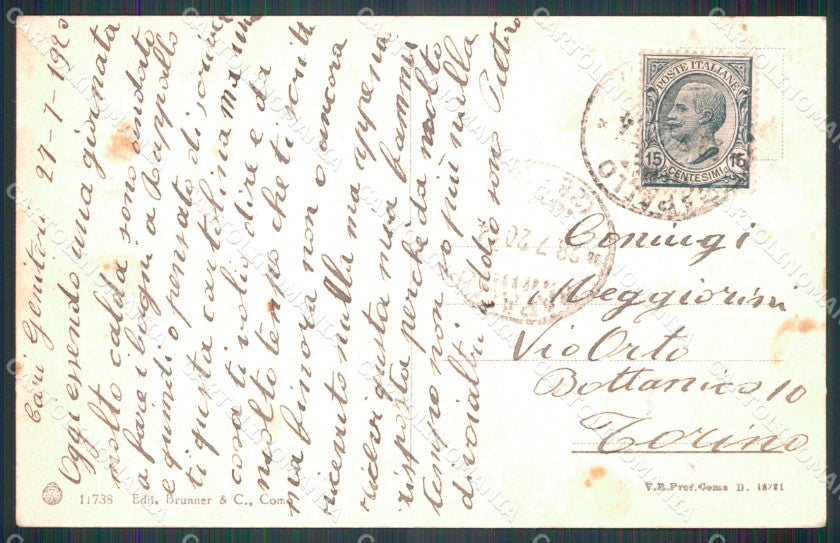 Cari Genitori 27-7-1920
Oggi essendo una giornata
molto calda sono andato
a fare i bagni a Rapallo
e quindi o pensato di scrivere
ti questa cartolina ma una
cosa ti volio dire e da
molto tempo che ti scritt
ma binora non o ancora
ricevuto nulla ma appena
ricevi questa mia fammi
risposta perche da molto
tempo non so più nulla
di voialtri addio sono Pietro
POSTE ITALIANE
15 15
CENTESIMI
28.7.20
Coniugi
Meggiorini
Via Orto
Bottanico 10
Torino
11738 Edit. Brunner & C., Como
V.E.Prof.Como D. 18781
CARTOLINOMANIA